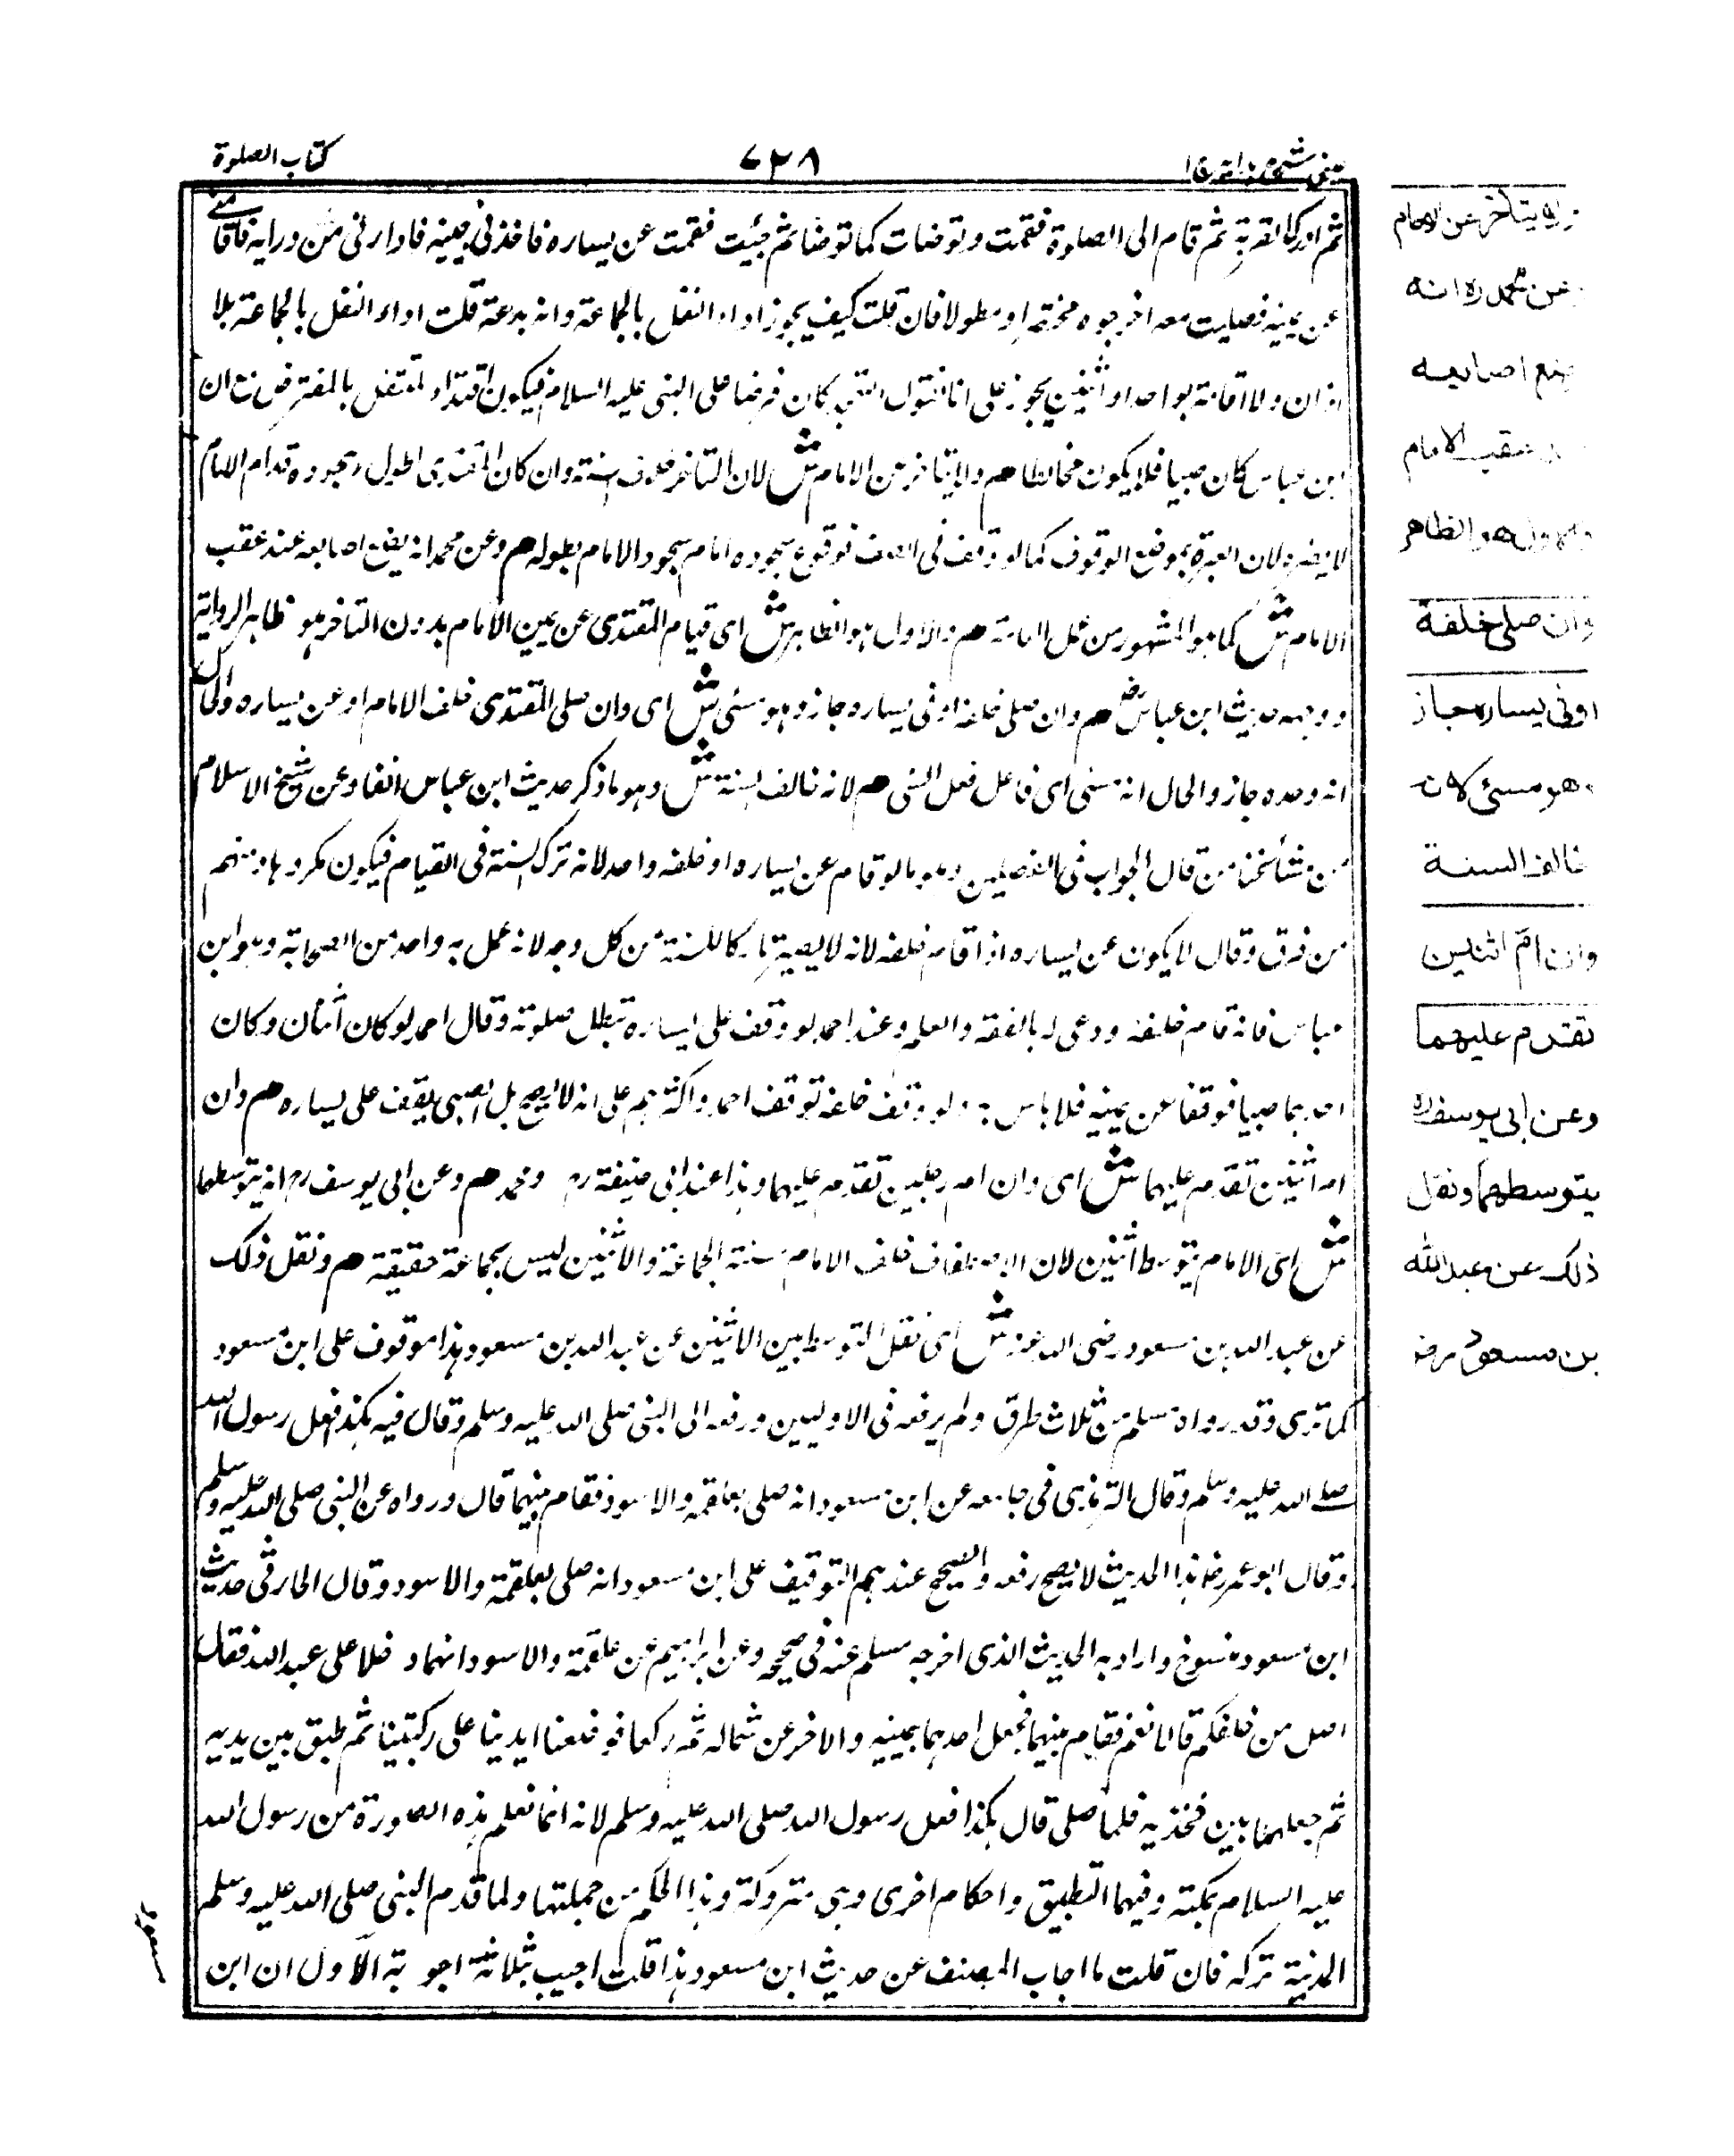 عینی شرح ہدایہ ج ا
٧٢٨
كتاب الصلوة
ثم اوكا القربة ثم قام الى الصلوة فقمت وتوضات كما توضا ثم جئت فقمت عن يساره فاخذني بيمينه فادارني من ورايه فاقامني
عن يمينه فصليت معه اخرجوه مختصرا ومطولا فان قلت كيف يجوز اداء النفل بالجماعة وانه بدعة قلت اداء النفل بالجماعة بلا
اذان ولا اقامة بواحد او اثنين يجوز على انا نقول التهجد كان فرضا على النبي عليه السلام فيكون اقتداء المتنفل بالمفترض ان
ابن عباس كان صبيا فلا يكون مخالطا هم ولا يتاخر عن الامام ش لان التاخر خلاف السنة وان كان المقتدي اطول وسجوده قدام الامام
لا يضره لان العبرة بموضع الوقوف كما لو وقف في الصف فوقع سجوده امام سجود الامام بطوله هم وعن محمد انه يضع اصابعه عند عقب
الامام ش كما هو المشهور من عمل العامة هم والاول هو الظاهر ش اى قيام المقتدى عن يمين الامام بدون التاخر هو ظاهر الرواية
ووجهه حديث ابن عباس رض هم وان صلى خلفه او في يساره جاز وهو مسئ ش اى وان صلى المقتدى خلف الامام او عن يساره والحال
انه وحده جاز والحال انه مسئ اى فاعل فعل السئ هم لانه خالف السنة ش وهو ما ذكر حديث ابن عباس انفا وعن شيخ الاسلام
من مشائخنا من قال الجواب في الفصلين وهو ما لو قام عن يساره او خلفه واحد لانه ترك السنة في القيام فيكون مكروها ومنهم
من فرق وقال لا يكون عن يساره اذا قام خلفه لانه لا يصير تاركا للسنة من كل وجه لانه عمل به واحد من الصحابة وهو ابن
عباس فانه قام خلفه ودعى له بالفقه والعلم وعند احمد لو وقف على يساره تبطل صلوته وقال احمد لو كان اثنان وكان
احدهما صبيا فوقفا عن يمينه فلا باس به ولو وقف خلفه توقف احمد واكثرهم على انه لا يصح بل الصبي يقف على يساره هم وان
ام اثنين تقدم عليهما ش اى وان ام رجلين تقدم عليهما وهذا عند ابي حنيفة رح ومحمد هم وعن ابى يوسف رح انه يتوسطهما
ش اى الامام يتوسط اثنين لان الاصطفاف خلف الامام سنة الجماعة والاثنين ليس بجماعة حقيقة هم ونقل ذلك
عن عبد الله بن مسعود رضى الله عنه ش اى نقل التوسط بين الاثنين عن عبد الله بن مسعود هذا موقوف على ابن مسعود
كما ترى وقد رواه مسلم من ثلاث طرق ولم يرفعه فى الاوليين ورفعه الى النبى صلى الله عليه وسلم وقال فيه هكذا فعل رسول الله
صلے الله عليه وسلم وقال الترمذى فى جامعه عن ابن مسعود انه صلى بعلقمة والاسود فقام بينهما قال ورواه عن النبى صلى الله عليه وسلم
وقال ابو عمر هذا الحديث لا يصح رفعه والصحيح عندهم التوقيف على ابن مسعود انه صلى بعلقمة والاسود وقال الحازمى حديث
ابن مسعود منسوخ واراد به الحديث الذى اخرجه مسلم عنه فى صحيحه وعن ابراهيم عن علقمة والاسود انهما دخلا على عبد الله فقال
اصلى من خلفكم قالا نعم فقام بينهما فجعل احدهما بيمينه والاخر عن شماله ثم ركعا فوضعنا ايدينا على ركبتينا ثم طبق بين يديه
ثم جعلهما بين فخذيه فلما صلى قال هكذا فعل رسول الله صلى الله عليه وسلم لانه انما نعلم هذه الصورة من رسول الله
عليه السلام بمكة وفيها التطبيق واحكام اخرى وهى متروكة وهذا الحكم من جملتها ولما قدم النبى صلى الله عليه وسلم
المدينة تركه فان قلت ما اجاب المصنف عن حديث ابن مسعود هذا قلت اجيب بثلاثة اجوبة الاول ان ابن
مسعود
ولا يتاخر عن الامام
وعن محمد ره انه
يضع اصابعه
عند عقب الامام
والاول هو الظاهر
وان صلى خلفه
او فى يساره جاز
وهو مسئ لانه
خالف السنة
وان امّ اثنين
تقدم عليهما
وعن ابى يوسف ره
يتوسطهما ونقل
ذلك عن عبد الله
بن مسعود رض